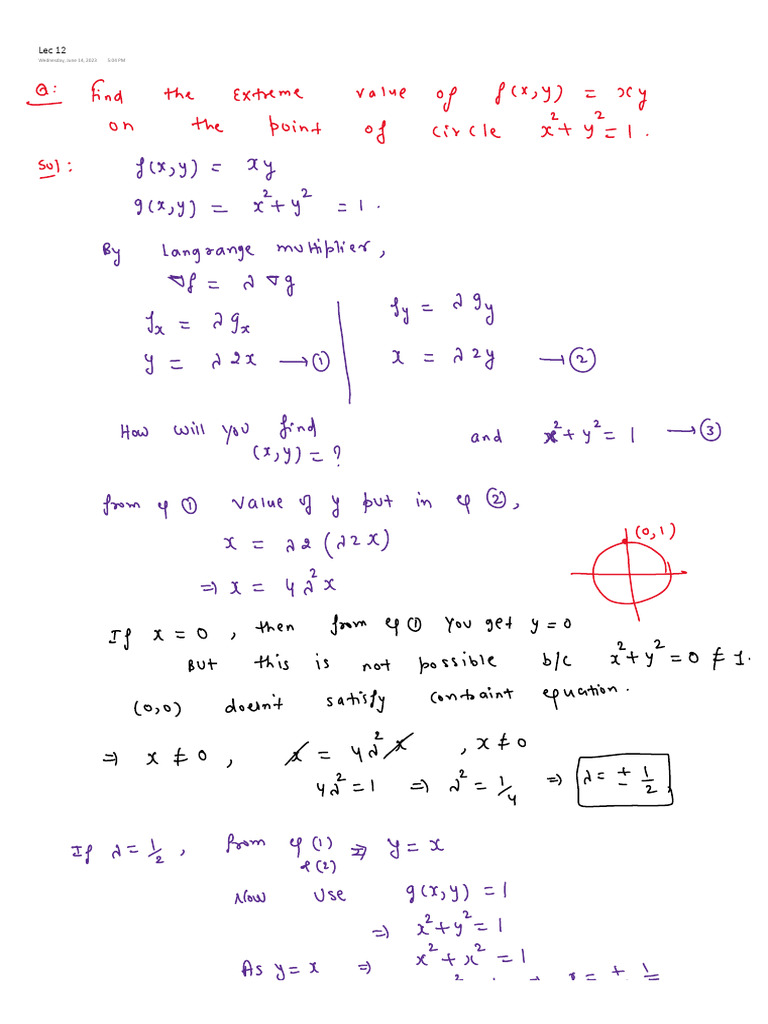 Lec 12
Wednesday, June 14, 2023 5:04 PM
Q: Find the extreme value of f(x,y) = xy
on the point of circle x²+y²=1.
Sol: f(x,y) = xy
g(x,y) = x²+y² = 1.
By Langrange multiplier,
∇f = λ ∇g
fx = λgx
fy = λgy
y = λ2x → ①
x = λ2y → ②
How will you find
(x,y) = ?
and x²+y² = 1 → ③
from eq ① value of y put in eq ②,
x = λ2(λ2x)
⇒ x = 4λ²x
(0,1)
If x = 0, then from eq ① you get y = 0
But this is not possible b/c x²+y² = 0 ≠ 1.
(0,0) doesn't satisfy contraint equation.
⇒ x ≠ 0, x = 4λ²x, x ≠ 0
4λ² = 1 ⇒ λ² = 1/4 ⇒ λ = ± 1/2,
If λ = 1/2, from eq (1) ⇒ y = x
& (2)
Now use g(x,y) = 1
⇒ x²+y² = 1
As y = x ⇒ x²+x² = 1